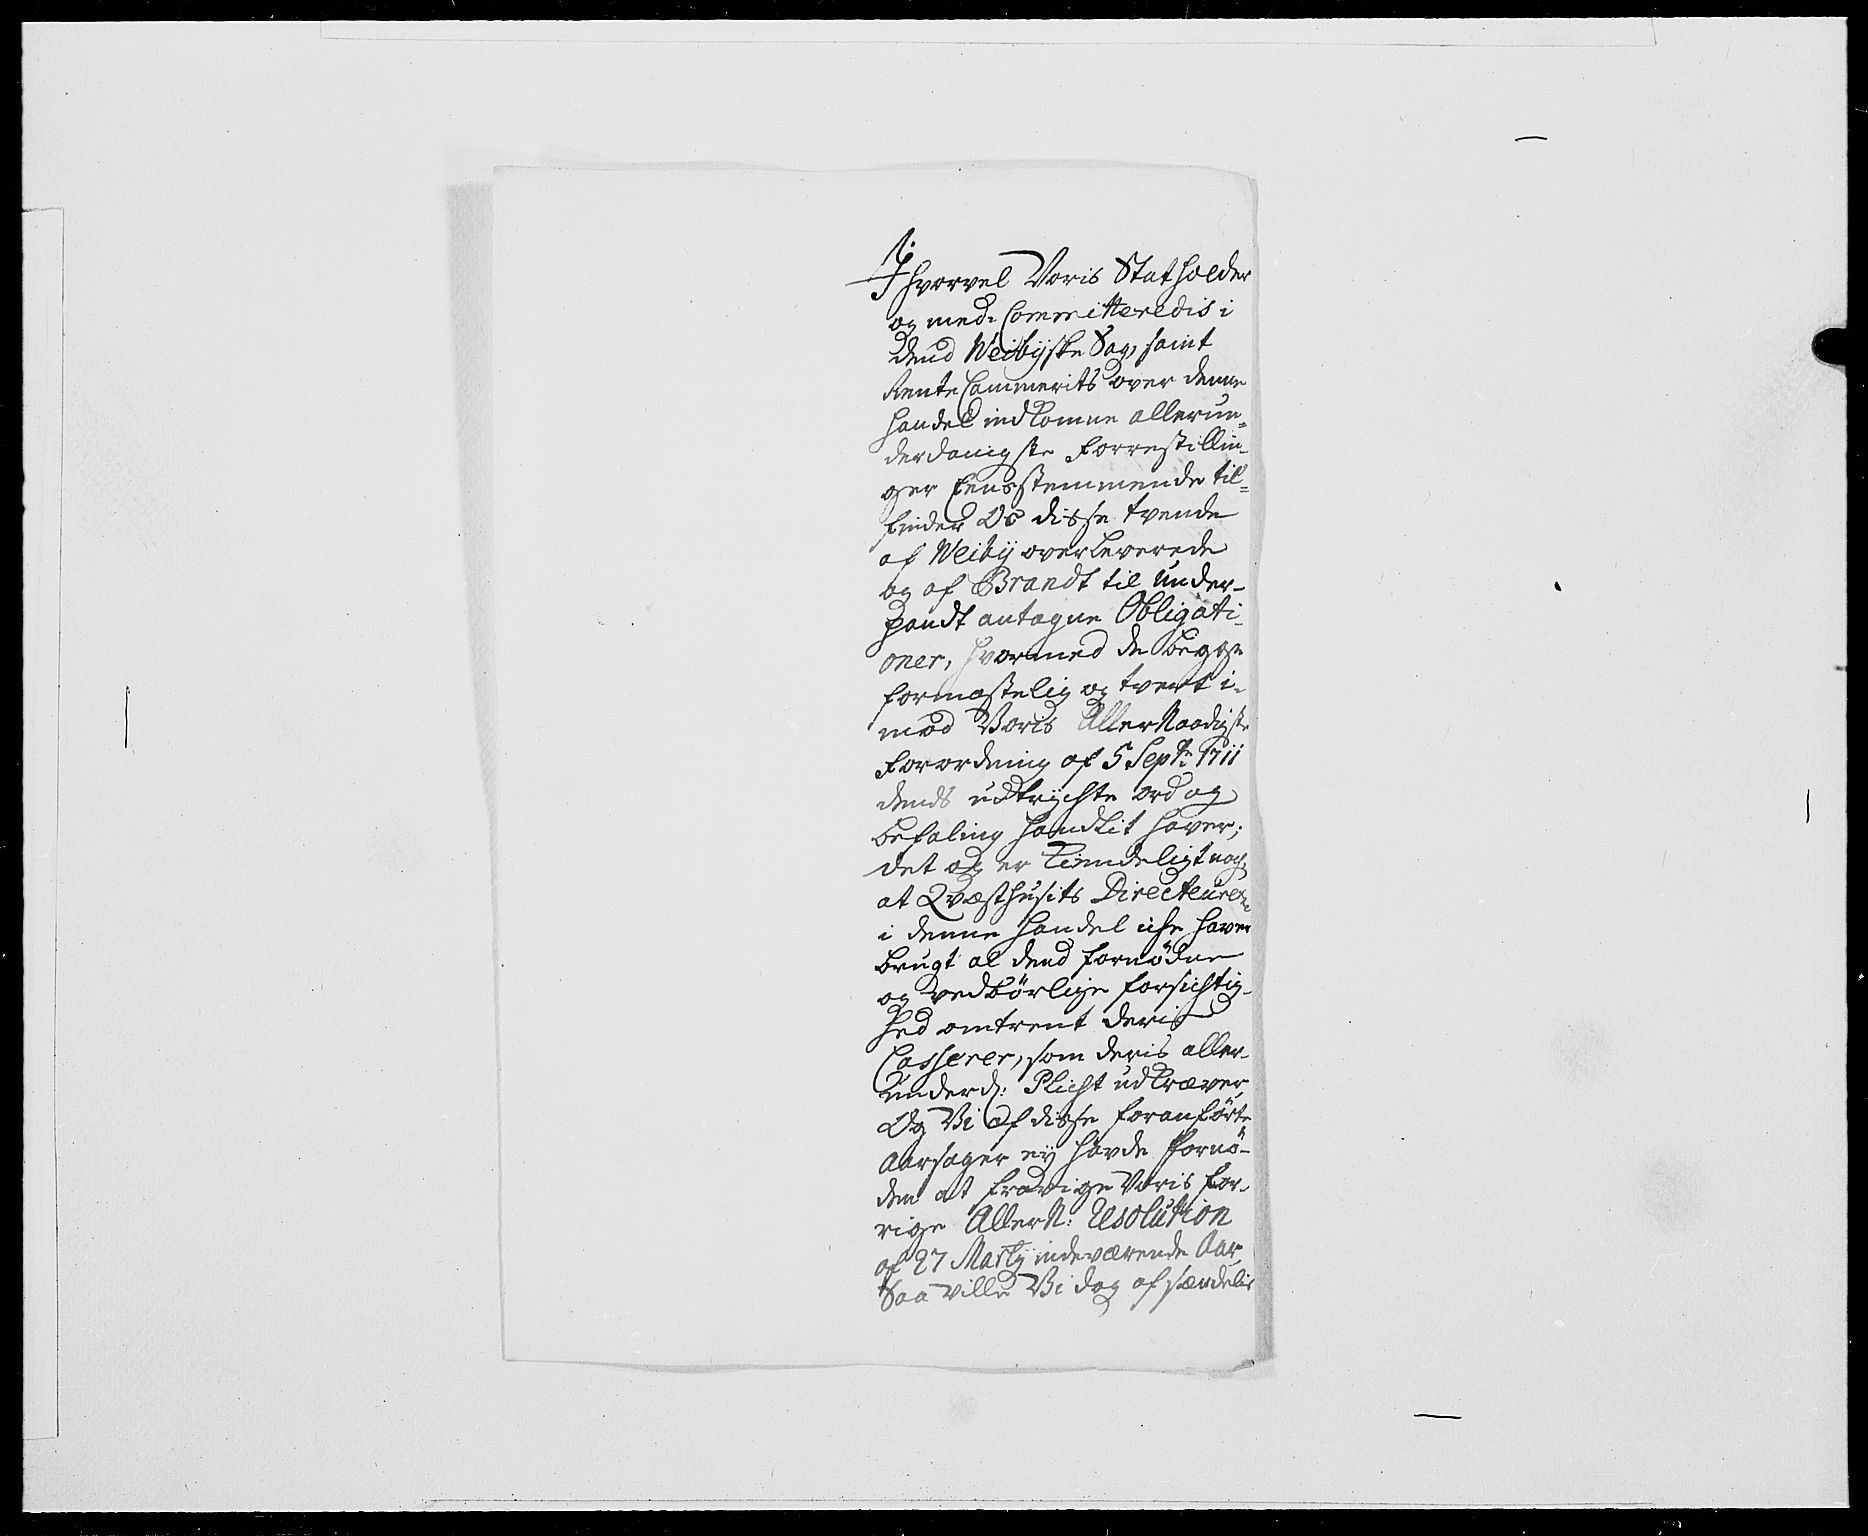 Ihvorvel Voris Statholder
og med-Committeredis i
dend Weibyske Sag, samt
RenteCammerits over denne
handel indkomne allerun-
derdanigste Forrestillin-
ger Eensstemmende til-
finder Os disse tvende
af Weibÿ overleverede
og af Brandt til under-
pandt antagne Obligati-
oner, hvormed de begge
formastelig og tvert i-
mod Voris AllerNaadigste
Forordning af 5 Septr: 1711
dends udtrychte ord og
befaling handlit haver;
det og er Kiendeligt nog,
at Qvæsthusits Directeurerne
i denne handel iche haver
brugt al dend fornødne
og vedbørlige forsichtig-
hed omtrent deris
Casserer, som deris aller-
underd: Plicht udkræver,
Og Vi af disse foranførte
Aarsager eÿ havde fornø-
den at fravige Voris for-
rige AllerN: Resolution
af 27 Martÿ indeværende Aar,
Saa ville Vi dog af særdelis